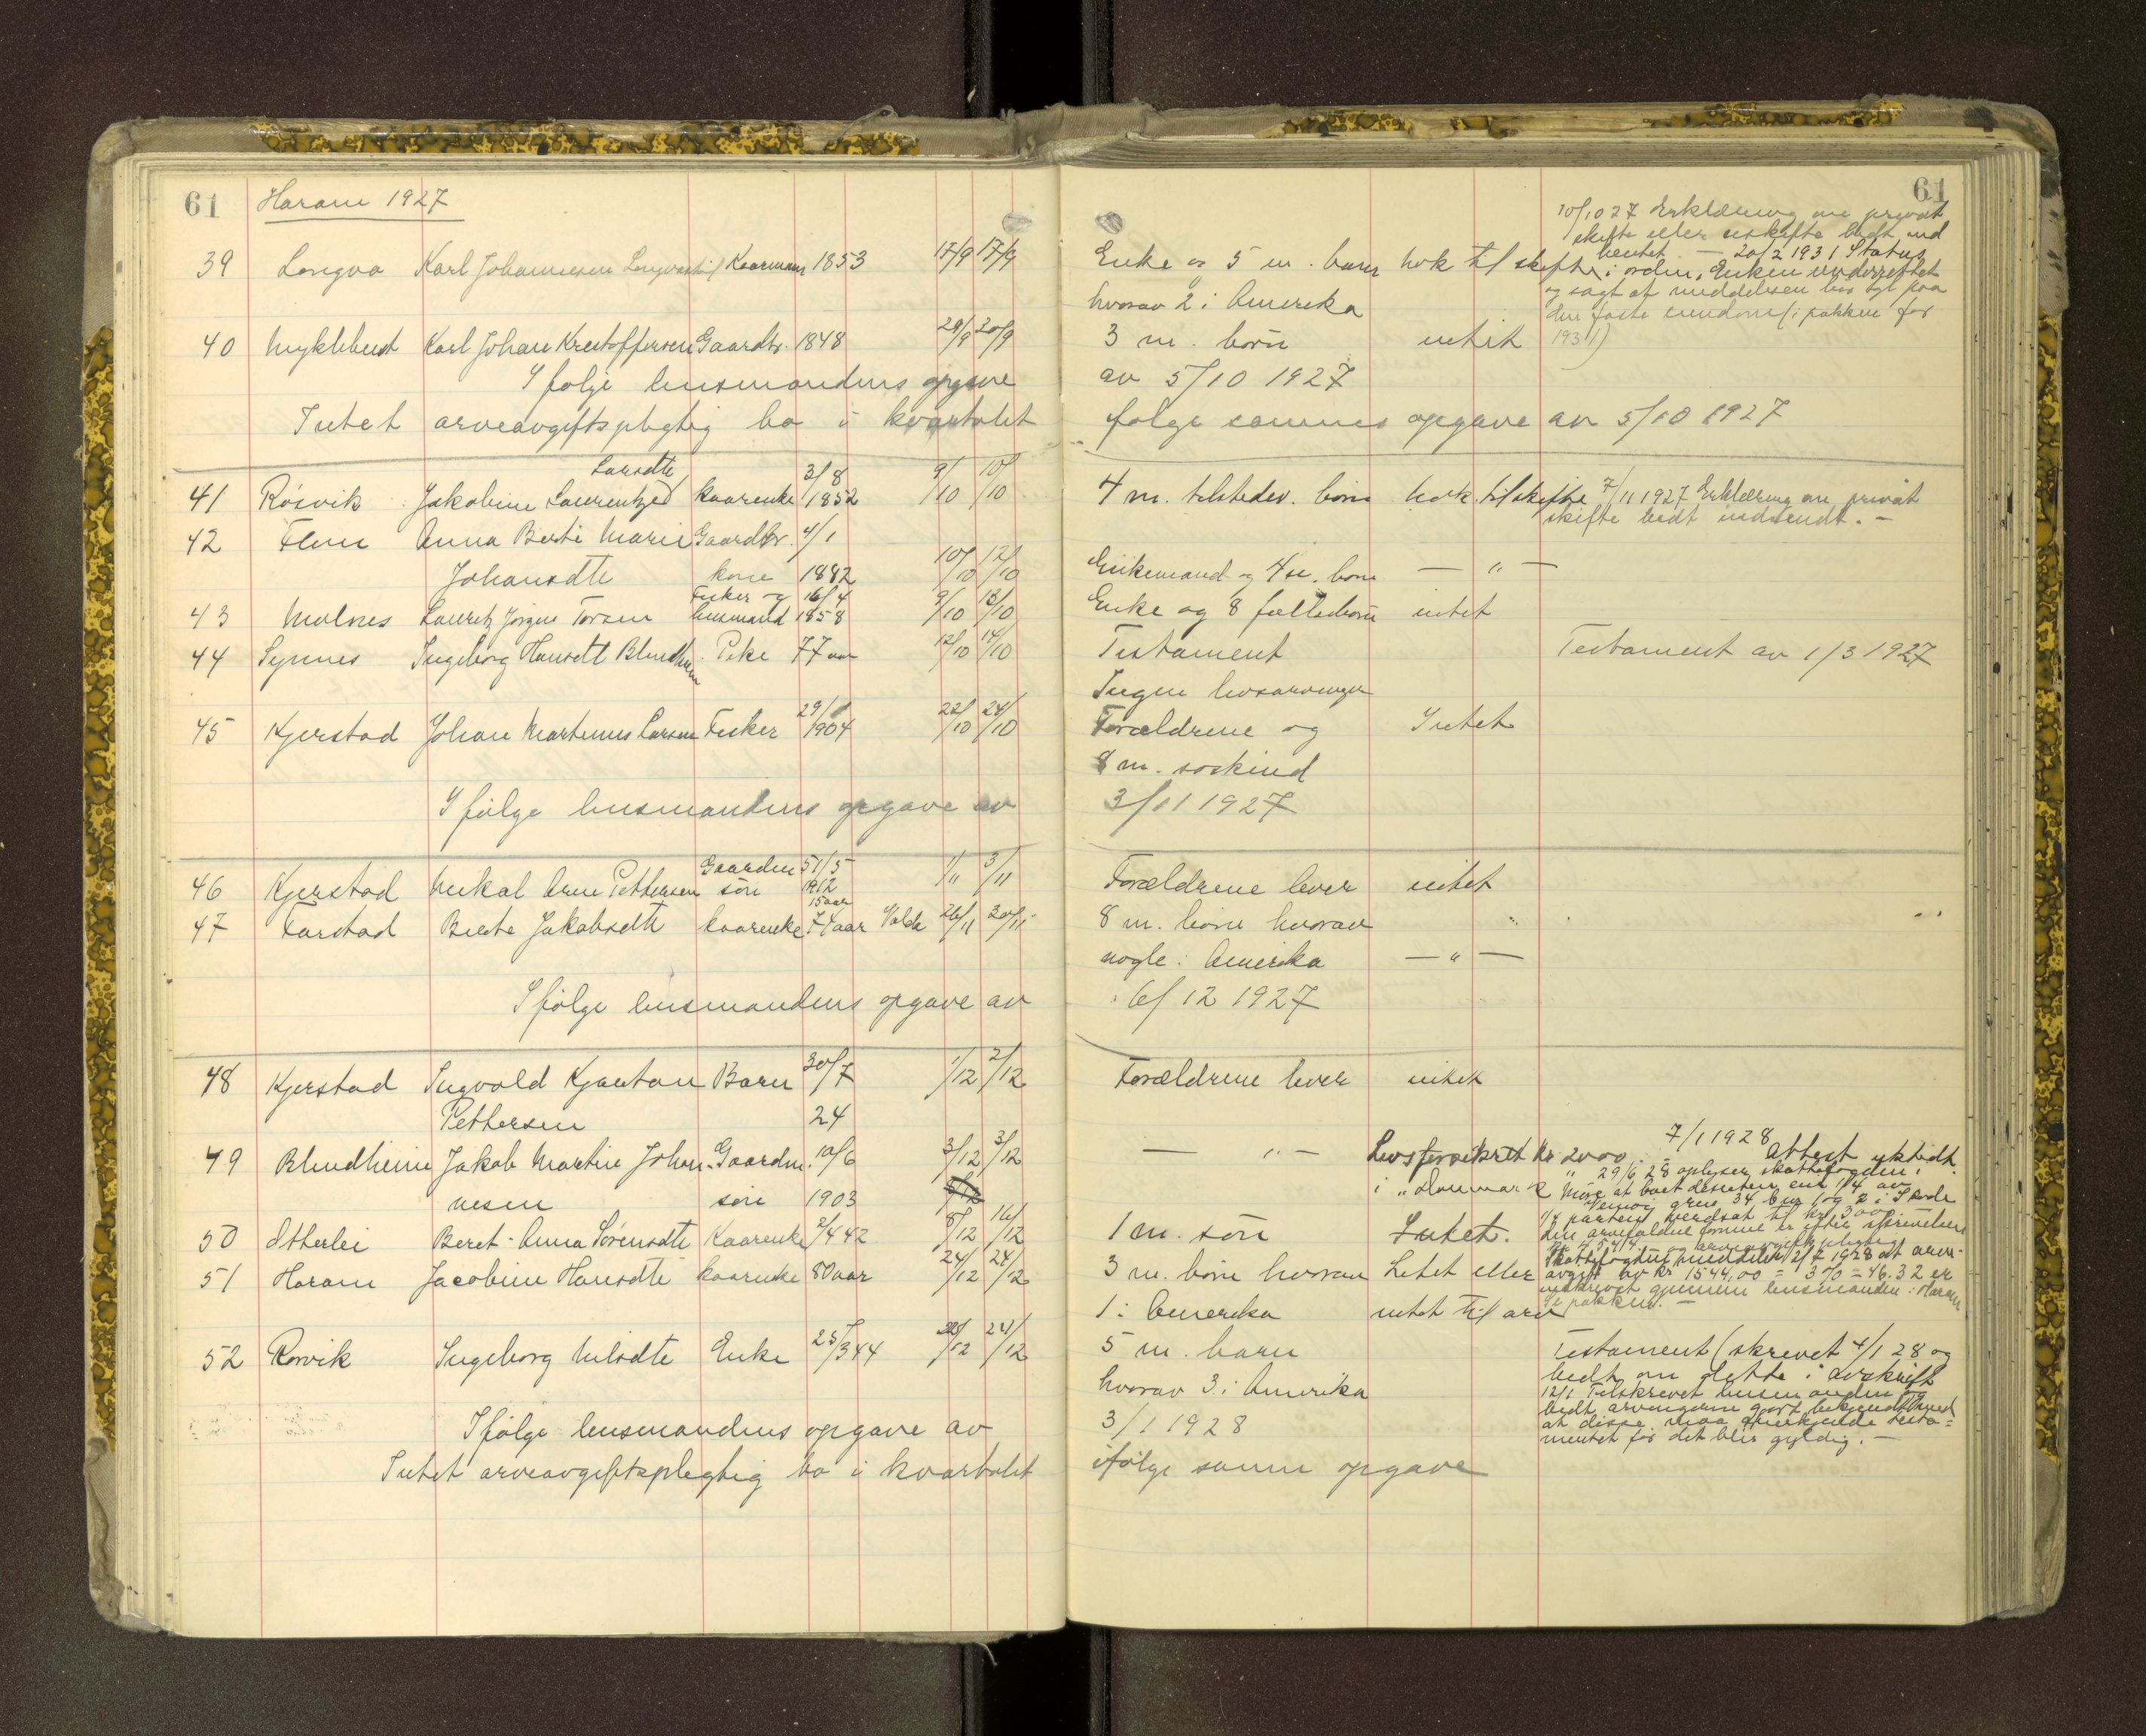 61 Haram 1927
39 Longva Karl Johannesen Kaarmann 1853 17/9 17/9
40 Myklebust Karl Johan Kristoffersen Gaardbr. 1848 20/9
I følge lensmandens opgave
Intet arveavgiftspligtig bo i kvartalet
Larsdtr
41 Røsvik Jakobine kaarenke 3/8 1852 9/10 10/10
42 Flem Anna Berte Marie Gaardbr. 4/1
Johansdtr kone 1882 10/10 12/10
43 Molnes Lauritz Jørgen Torsen Fisker og lensmand 16/4 1858 9/10 13/10
44 Synnes Ingeborg Hansdtr Blindheim Pike 77 aar 12/10 14/10
45 Kjerstad Johan Martinus Larsen Fisker 29/1 1904 22/10 24/10
I følge lensmandens opgave av
46 Kjerstad Mikal Arne Pettersen Gaardm. søn 31/5 1912 15 aar 1/11 3/11
47 Farstad Berte Jakobsdtr kaarenke 74 aar Valde 26/11 30/11
I følge lensmandens opgave av
48 Kjerstad Ingvald Kjartan Barn 30/7 1/12 2/12
Pettersen 24
49 Blindheim Jakob Martin Johan- Gaardm. 10/6 3/12 3/12
nesen søn 1903
50 Otterlei Beret-Anna Sørensdtr Kaarenke 2/4 42 8/12 16/12
51 Haram Jacobine Hansdtr kaarenke 80 aar 24/12 24/12
52 Rørvik Ingeborg Nilsdtr Enke 25/3 44 24/12
Ifølge lensmandens opgave av
Intet arveavgiftspligtig bo i kvartalet
61
10/10 27 Erklæring om privat
skifte eller uskifte bedt ind
hentet. — 20/2 1931 Status
Enke og 5 m. barn nok til skifte i orden. Enken underrettet
hvorav 2 i Amerika og sagt at meddelelsen blir tgl paa
den faste eiendom (i pakken for
1931)
3 m. børn intet
av 5/10 1927
følge sammes opgave av 5/10 1927
4 m. tilstedev. børn nok til skifte 7/11 1927 Erklæring om privat
skifte bedt indsendt. —
Enkemand og 4 m. børn — " —
Enke og 8 fællesbørn intet
Testament Testament av 1/3 1927
Ingen livsarvinger
Forældrene og Intet
8 m. søskind
3/11 1927
Forældrene lever intet
8 m. børn hvorav
nogle i Amerika — " —
6/12 1927
Forældrene lever intet
7/1 1928
— " — Livsforsikret kr 2000. Attest utstedt.
i "Danmark" 29/6 28 oplyser skattefogden i
Møre at boet desuten eier 1/4 av
gnr 34 bnr 1 og 2 i Skodje
1/4 parten verdsat til kr 3000
1 m. søn Intet. Den arvefaldne formue er efter
3 m. børn hvorav Litet eller Skattefogden meddeler 12/7 1928 at arve-
avgift av kr 1544,00 = 3% = 46.32 er
1 i Amerika intet til arv indkrævet gjennem lensmanden i Haram
i pakken. —
5 m. barn Testament (skrevet 4/1 28 og
hvorav 3 i Amerika bedt om dette i avskrift
12/1 Tilskrevet lensmanden og
3/1 1928 bedt arvingerne gjort bekjendt med
at disse maa godkjende testa=
mentet før det blir gyldig. —
ifølge samme opgave